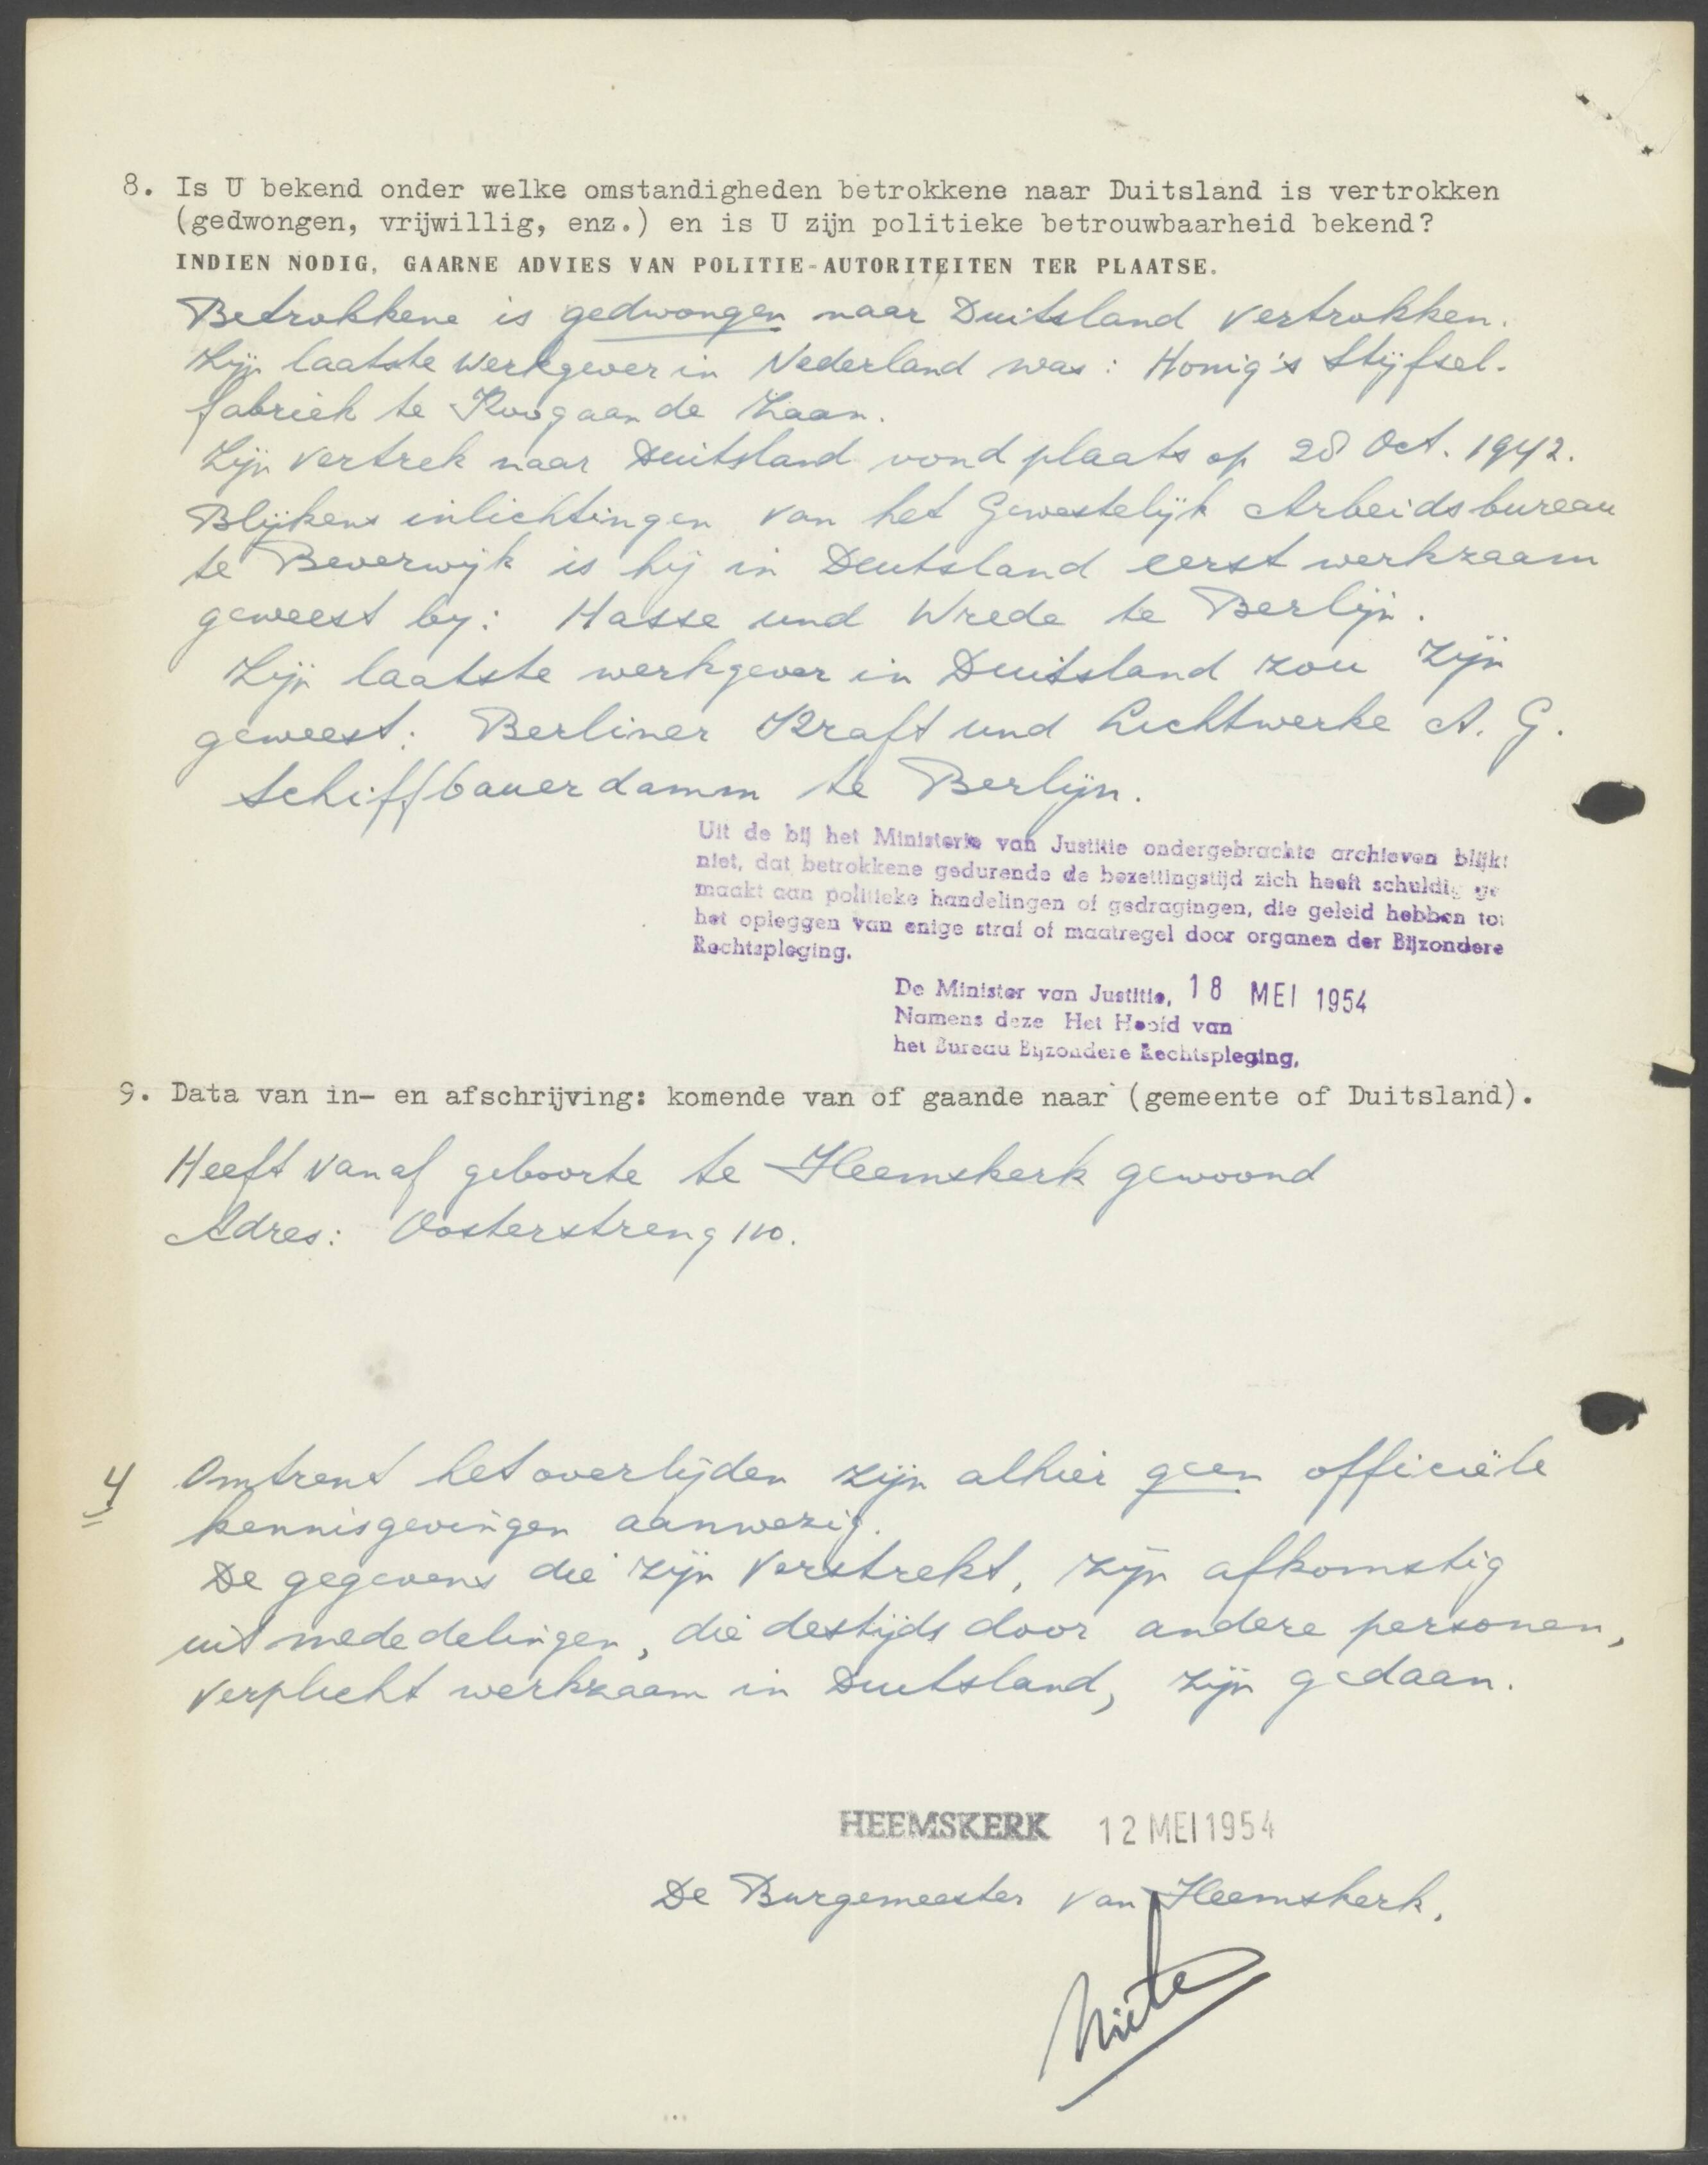 8. Is U bekend onder welke omstandigheden betrokkene naar Duitsland is vertrokken
(gedwongen, vrijwillig, enz.) en is U zijn politieke betrouwbaarheid bekend?
INDIEN NODIG, GAARNE ADVIES VAN POLITIE-AUTORITEITEN TER PLAATSE.
Betrokkene is gedwongen naar Duitsland vertrokken.
Zijn laatste werkgever in Nederland was: Honig's Stijfsel-
fabriek te Koog aan de Zaan.
Zijn vertrek naar Duitsland vond plaats op 28 Oct. 1942.
Blijkens inlichtingen van het Gewestelijk Arbeidsbureau
te Beverwijk is hij in Duitsland eerst werkzaam
geweest by: Hasse und Wrede te Berlijn.
Zijn laatste werkgever in Duitsland zou zijn
geweest: Berliner Kraft und Lichtwerke A.G.
Schiffbauerdamm te Berlijn.
Uit de bij het Ministerie van Justitie ondergebrachte archieven blijkt
niet, dat betrokkene gedurende de bezettingstijd zich heeft schuldig ge
maakt aan politieke handelingen of gedragingen, die geleid hebben tot
het opleggen van enige straf of maatregel door organen der Bijzondere
Rechtspleging.
De Minister van Justitie, 18 MEI 1954
Namens deze Het Hoofd van
het Bureau Bijzondere Rechtspleging,
9. Data van in- en afschrijving: komende van of gaande naar (gemeente of Duitsland).
Heeft vanaf geboorte te Heemskerk gewoond
Adres: Oosterstreng 110.
4 Omtrent het overlijden zijn alhier geen officiële
kennisgevingen aanwezig.
De gegevens die zijn verstrekt, zijn afkomstig
uit mededelingen, die destijds door andere personen,
verplicht werkzaam in Duitsland, zijn gedaan.
HEEMSKERK 12 MEI 1954
De Burgemeester van Heemskerk,